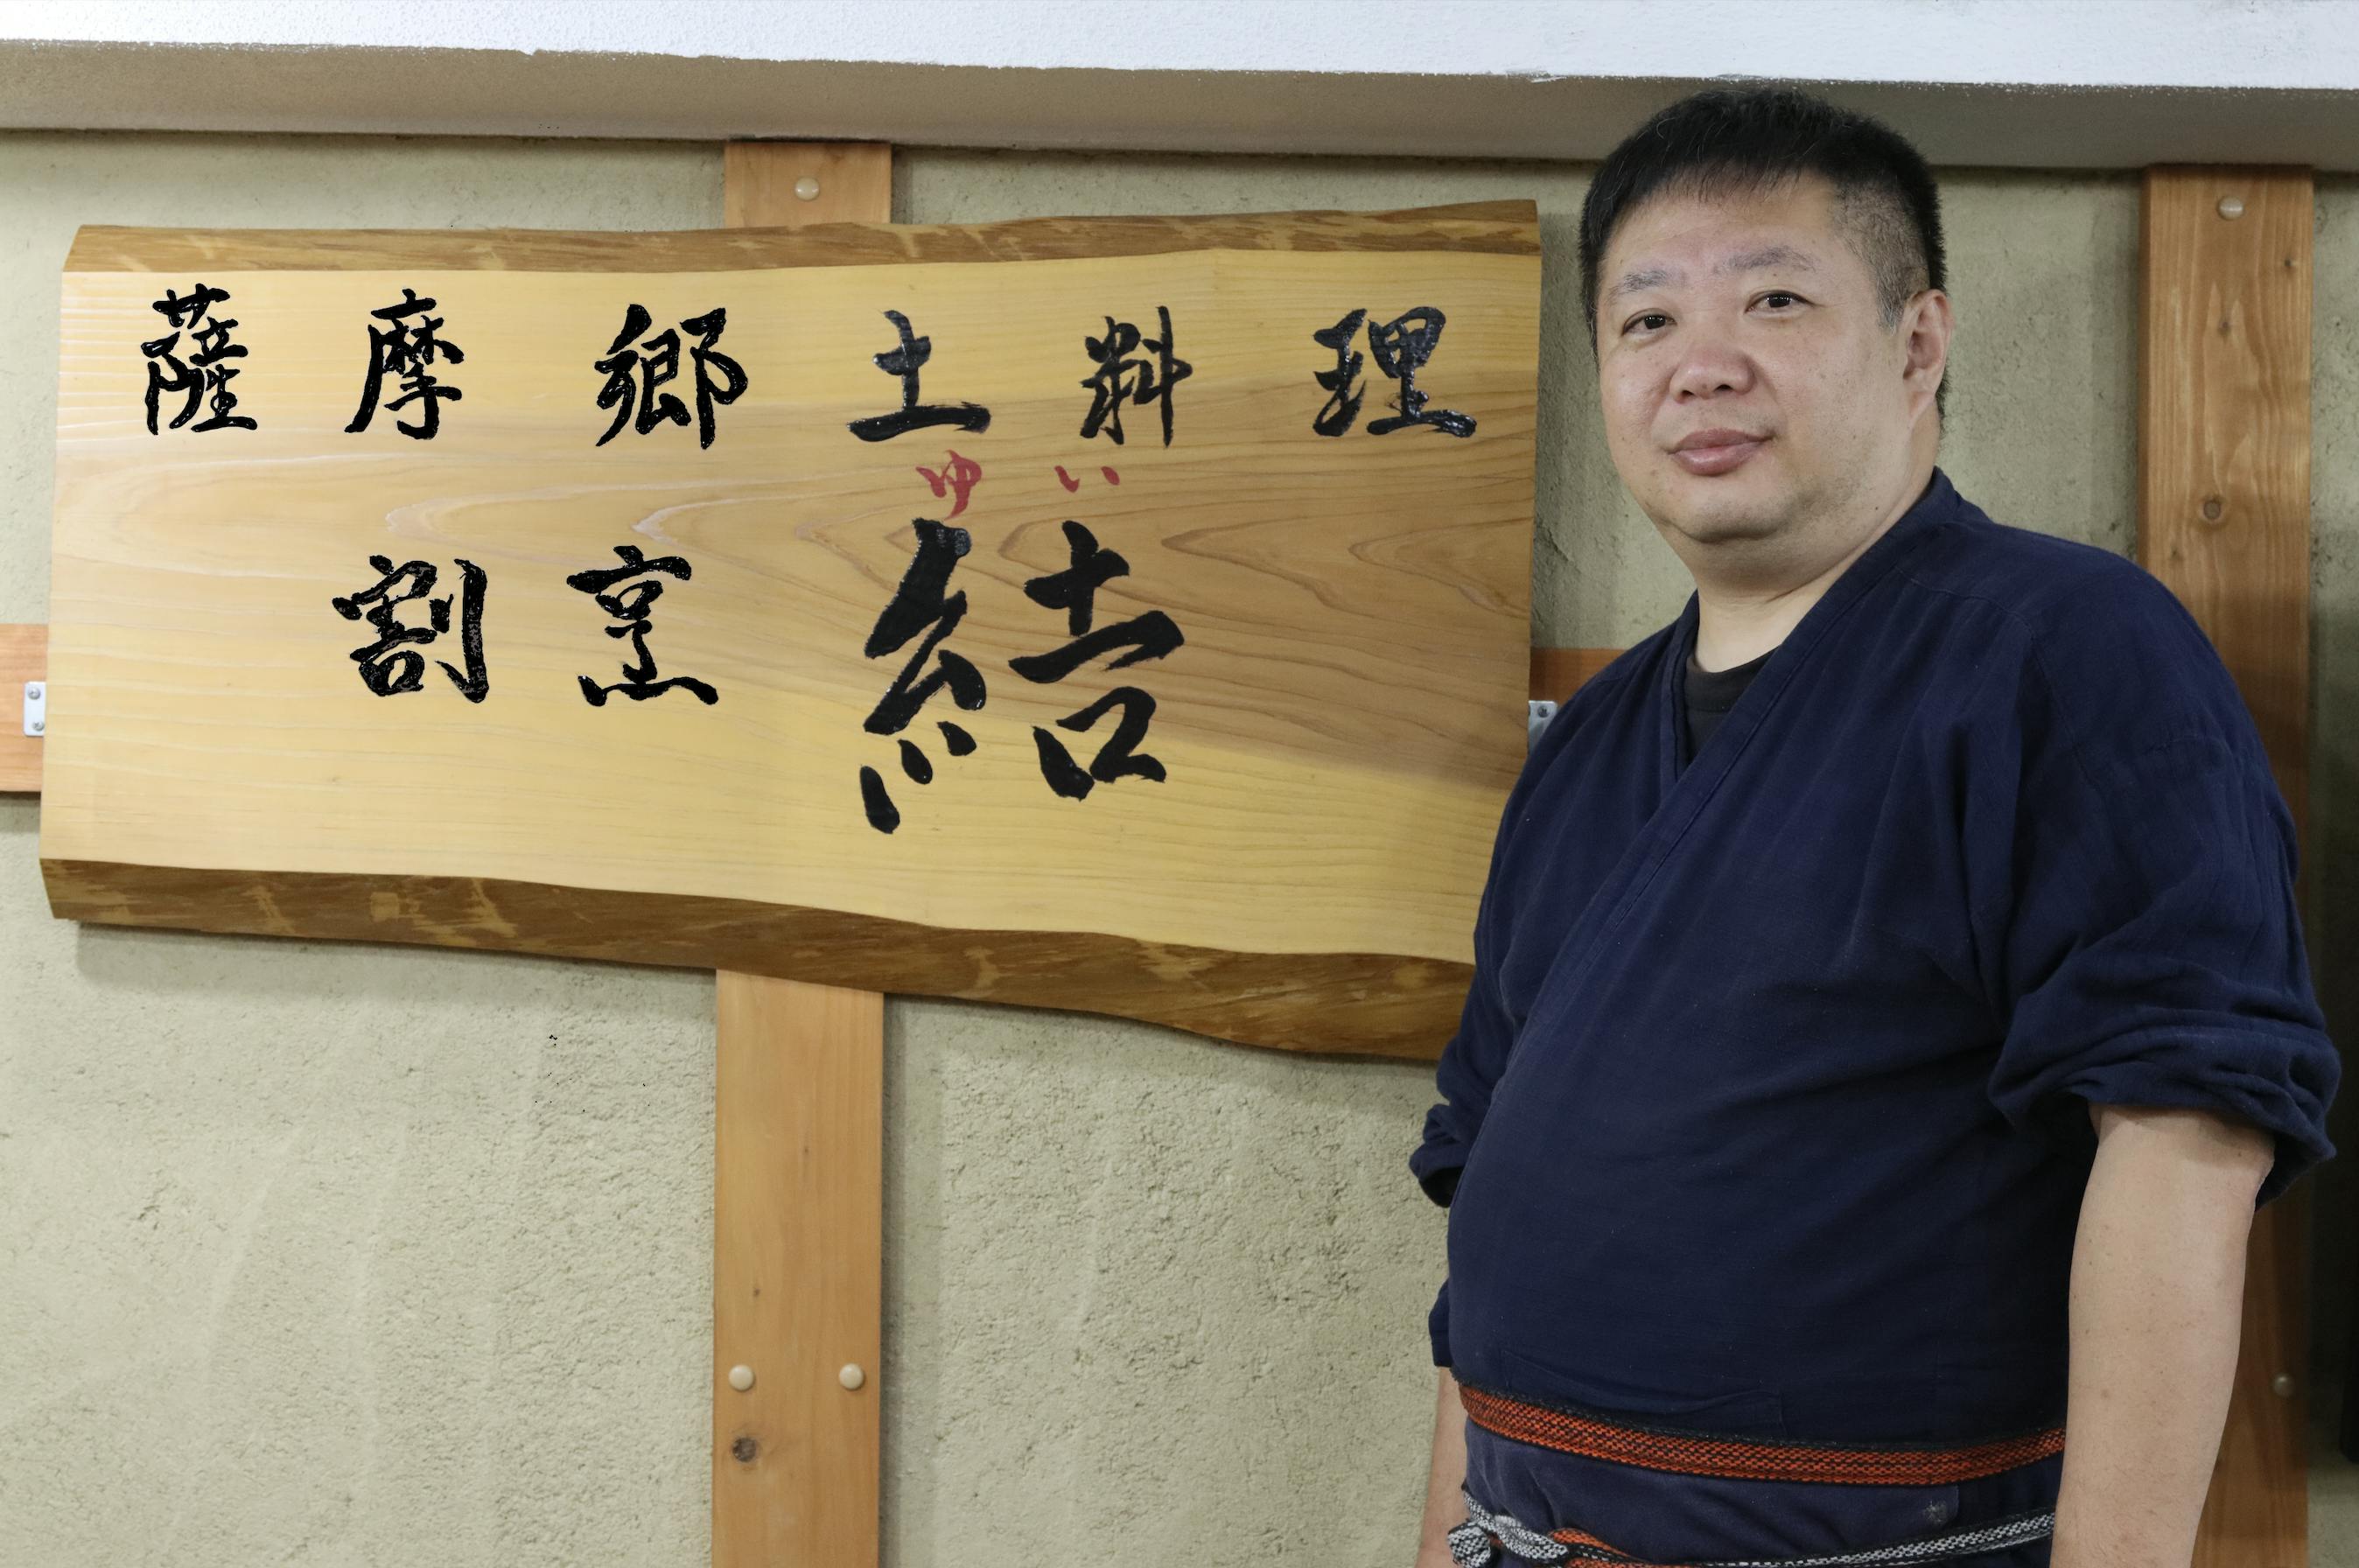 薩摩郷土料理
ゆい
割烹 結